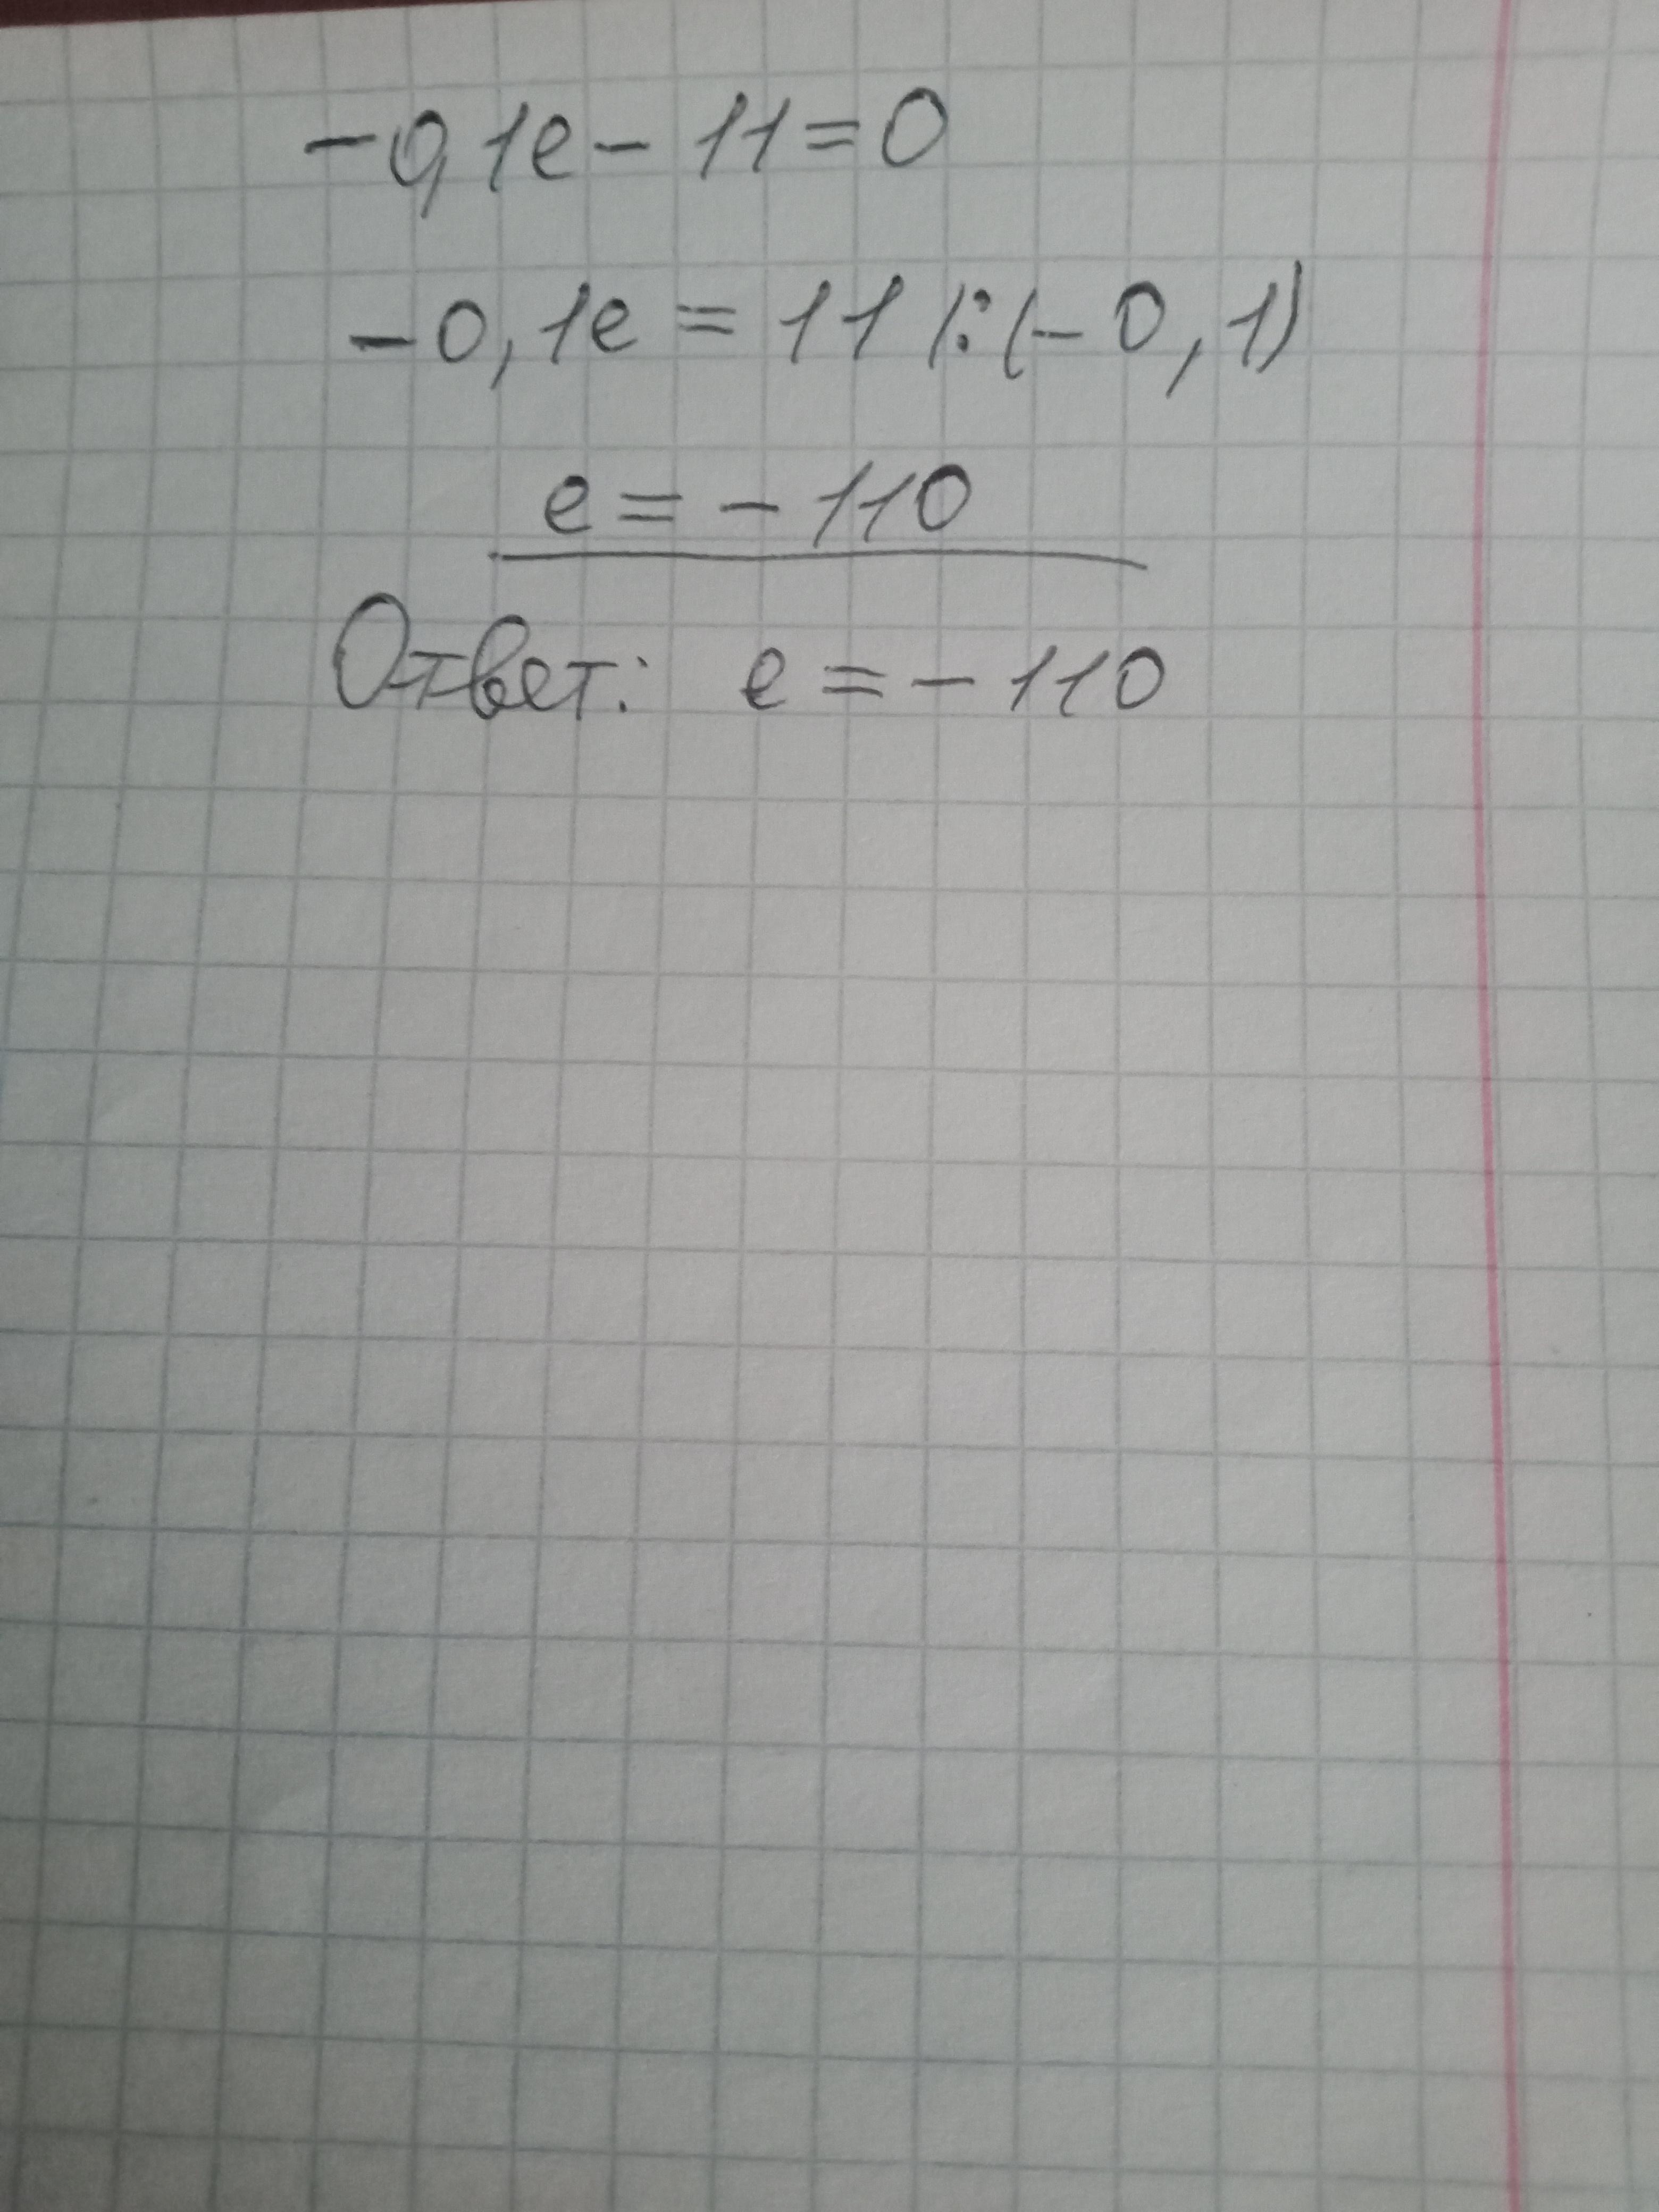 -0,1e - 11 = 0
-0,1e = 11 |:(-0,1)
e = -110
Ответ: e = -110